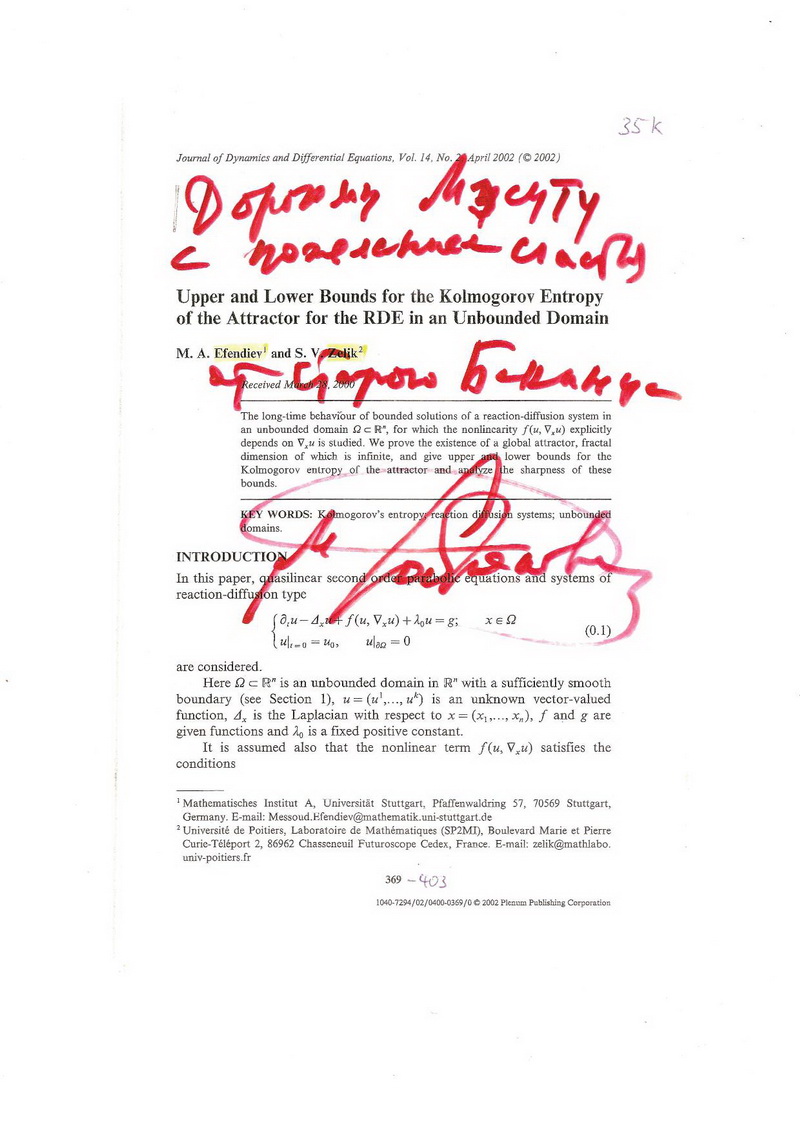 35 K
Journal of Dynamics and Differential Equations, Vol. 14, No. 2, April 2002 (© 2002)
Дорогому Мэситу
с пожеланием счастья
Upper and Lower Bounds for the Kolmogorov Entropy
of the Attractor for the RDE in an Unbounded Domain
M. A. Efendiev¹ and S. V. Zelik²
от старого
Received March 28, 2000
The long-time behaviour of bounded solutions of a reaction-diffusion system in
an unbounded domain Ω ⊂ ℝⁿ, for which the nonlinearity f(u, ∇ₓu) explicitly
depends on ∇ₓu is studied. We prove the existence of a global attractor, fractal
dimension of which is infinite, and give upper and lower bounds for the
Kolmogorov entropy of the attractor and analyze the sharpness of these
bounds.
KEY WORDS: Kolmogorov's entropy; reaction diffusion systems; unbounded
domains.
INTRODUCTION
In this paper, quasilinear second order parabolic equations and systems of
reaction-diffusion type
∂ₜu − Δₓu + f(u, ∇ₓu) + λ₀u = g; x ∈ Ω
u|ₜ₌₀ = u₀, u|∂Ω = 0 (0.1)
are considered.
Here Ω ⊂ ℝⁿ is an unbounded domain in ℝⁿ with a sufficiently smooth
boundary (see Section 1), u = (u¹,..., uᵏ) is an unknown vector-valued
function, Δₓ is the Laplacian with respect to x = (x₁,..., xₙ), f and g are
given functions and λ₀ is a fixed positive constant.
It is assumed also that the nonlinear term f(u, ∇ₓu) satisfies the
conditions
¹ Mathematisches Institut A, Universität Stuttgart, Pfaffenwaldring 57, 70569 Stuttgart,
Germany. E-mail: Messoud.Efendiev@mathematik.uni-stuttgart.de
² Université de Poitiers, Laboratoire de Mathématiques (SP2MI), Boulevard Marie et Pierre
Curie-Téléport 2, 86962 Chasseneuil Futuroscope Cedex, France. E-mail: zelik@mathlabo.
univ-poitiers.fr
369 – 403
1040-7294/02/0400-0369/0 © 2002 Plenum Publishing Corporation